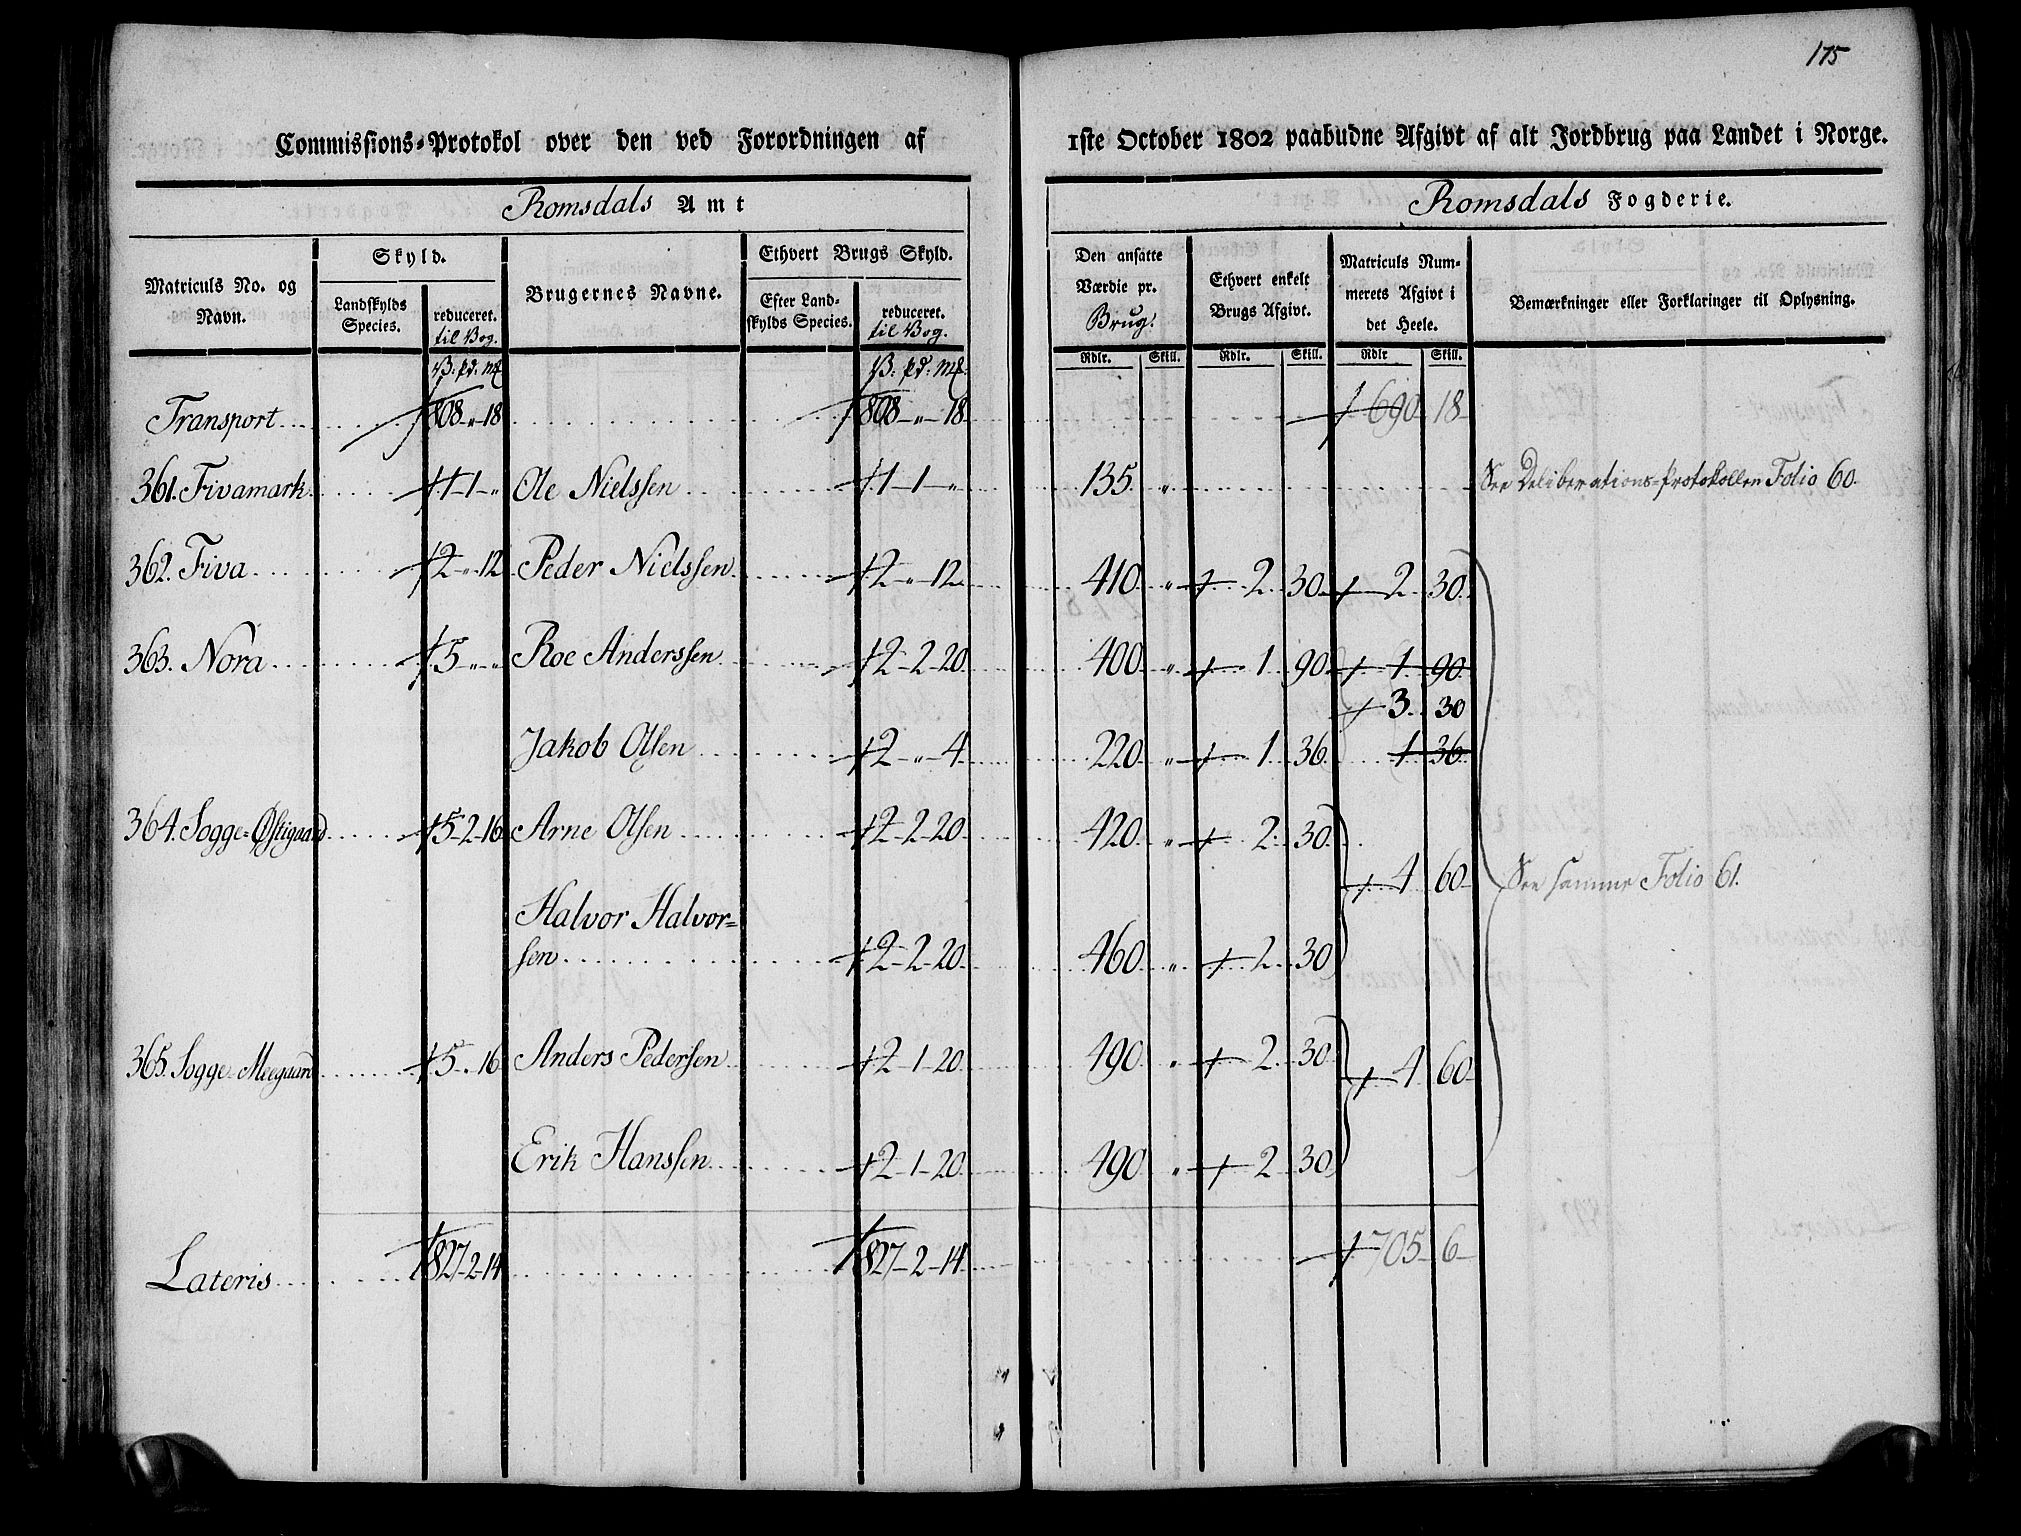 175
Commissions-Protokol over den ved Forordningen af 1ste October 1802 paabudne Afgivt af alt Jordbrug paa Landet i Norge.
Romsdals Amt
Romsdals Fogderie.
Matriculs No. og Navn.
Skyld.
Landskylds Species.
reduceret. til Vog.
Brugernes Navne.
Ethvert Brugs Skyld.
Efter Landskylds Species.
reduceret. til Vog.
Den ansatte Værdie pr. Brug.
Ethvert enkelt Brugs Afgivt.
Matriculs Nummerets Afgivt i det Heele.
Bemærkninger eller Forklaringer til Oplysning.
V: pd: mk V: pd: mk: Rdlr. Skill. Rdlr. Skill. Rdlr Skill.
Transport 808 - " - 18 808 - " - 18 690 18
361. Fivamark 1 - 1 - " Ole Nielssen 1 - 1 - " 135 " See Deliberations-Protokollen Folio 60.
362. Fiva 2 - " - 12 Peder Nielssen 2 - " - 12 410 " 2 30 2 30
363. Nora 5 - " - " Roe Anderssen 2 - 2 - 20 400 " 1 90 1 90
3 30
Jakob Olsen 2 - " - 4 220 " 1 36 1 36
364. Sogge-Østigaard 5 - 2 - 16 Arne Olsen 2 - 2 - 20 420 " 2 30
4 60 See samme Folio 61.
Halvor Halvor=
sen 2 - 2 - 20 460 " 2 30
365. Sogge-Meegaard 5 - " 16 Anders Pedersen 2 - 1 - 20 490 " 2 30
4 60
Erik Hanssen 2 - 1 - 20 490 " 2 30
Lateris 827 - 2 - 14 827 - 2 - 14 705 6